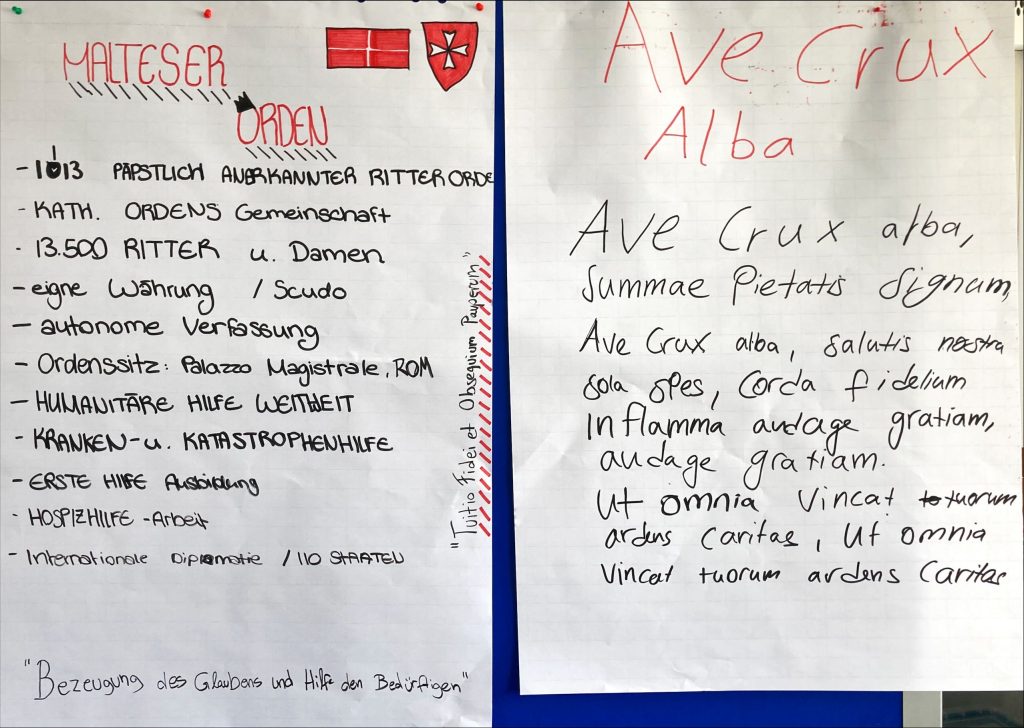 MALTESER
ORDEN
- 1013 PÄPSTLICH ANERKANNTER RITTERORDE
- KATH. ORDENS Gemeinschaft
- 13.500 RITTER u. Damen
- eigne Währung / Scudo
- autonome Verfassung
- Ordenssitz: Palazzo Magistrale, ROM
- HUMANITÄRE HILFE WELTWEIT
- KRANKEN- u. KATASTROPHENHILFE
- ERSTE HILFE Ausbildung
- HOSPIZHILFE - Arbeit
- Internationale Diplomatie / 110 STAATEN
"Bezeugung des Glaubens und Hilfe den Bedürftigen"
"Tuitio Fidei et Obsequium Pauperum"
Ave Crux
Alba
Ave Crux alba,
Summae Pietatis Signum,
Ave Crux alba, Salutis nostra
Sola Spes, Corda fidelium
Inflamma audage gratiam,
audage gratiam.
Ut omnia Vincat tuorum
ardens Caritas, Ut omnia
Vincat tuorum ardens Caritas